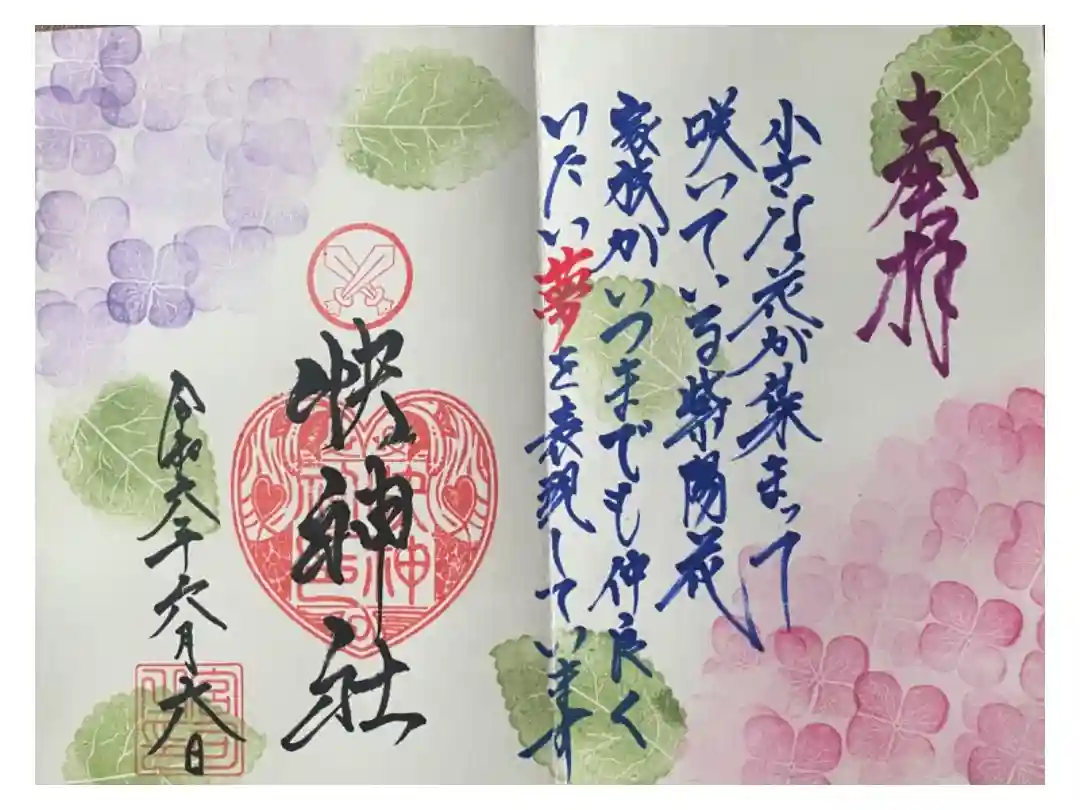 奉拝
小さな花が集まって
咲いている紫陽花
家族がいつまでも仲良く
いたい夢を表現しています
快神社
令和六年六月六日